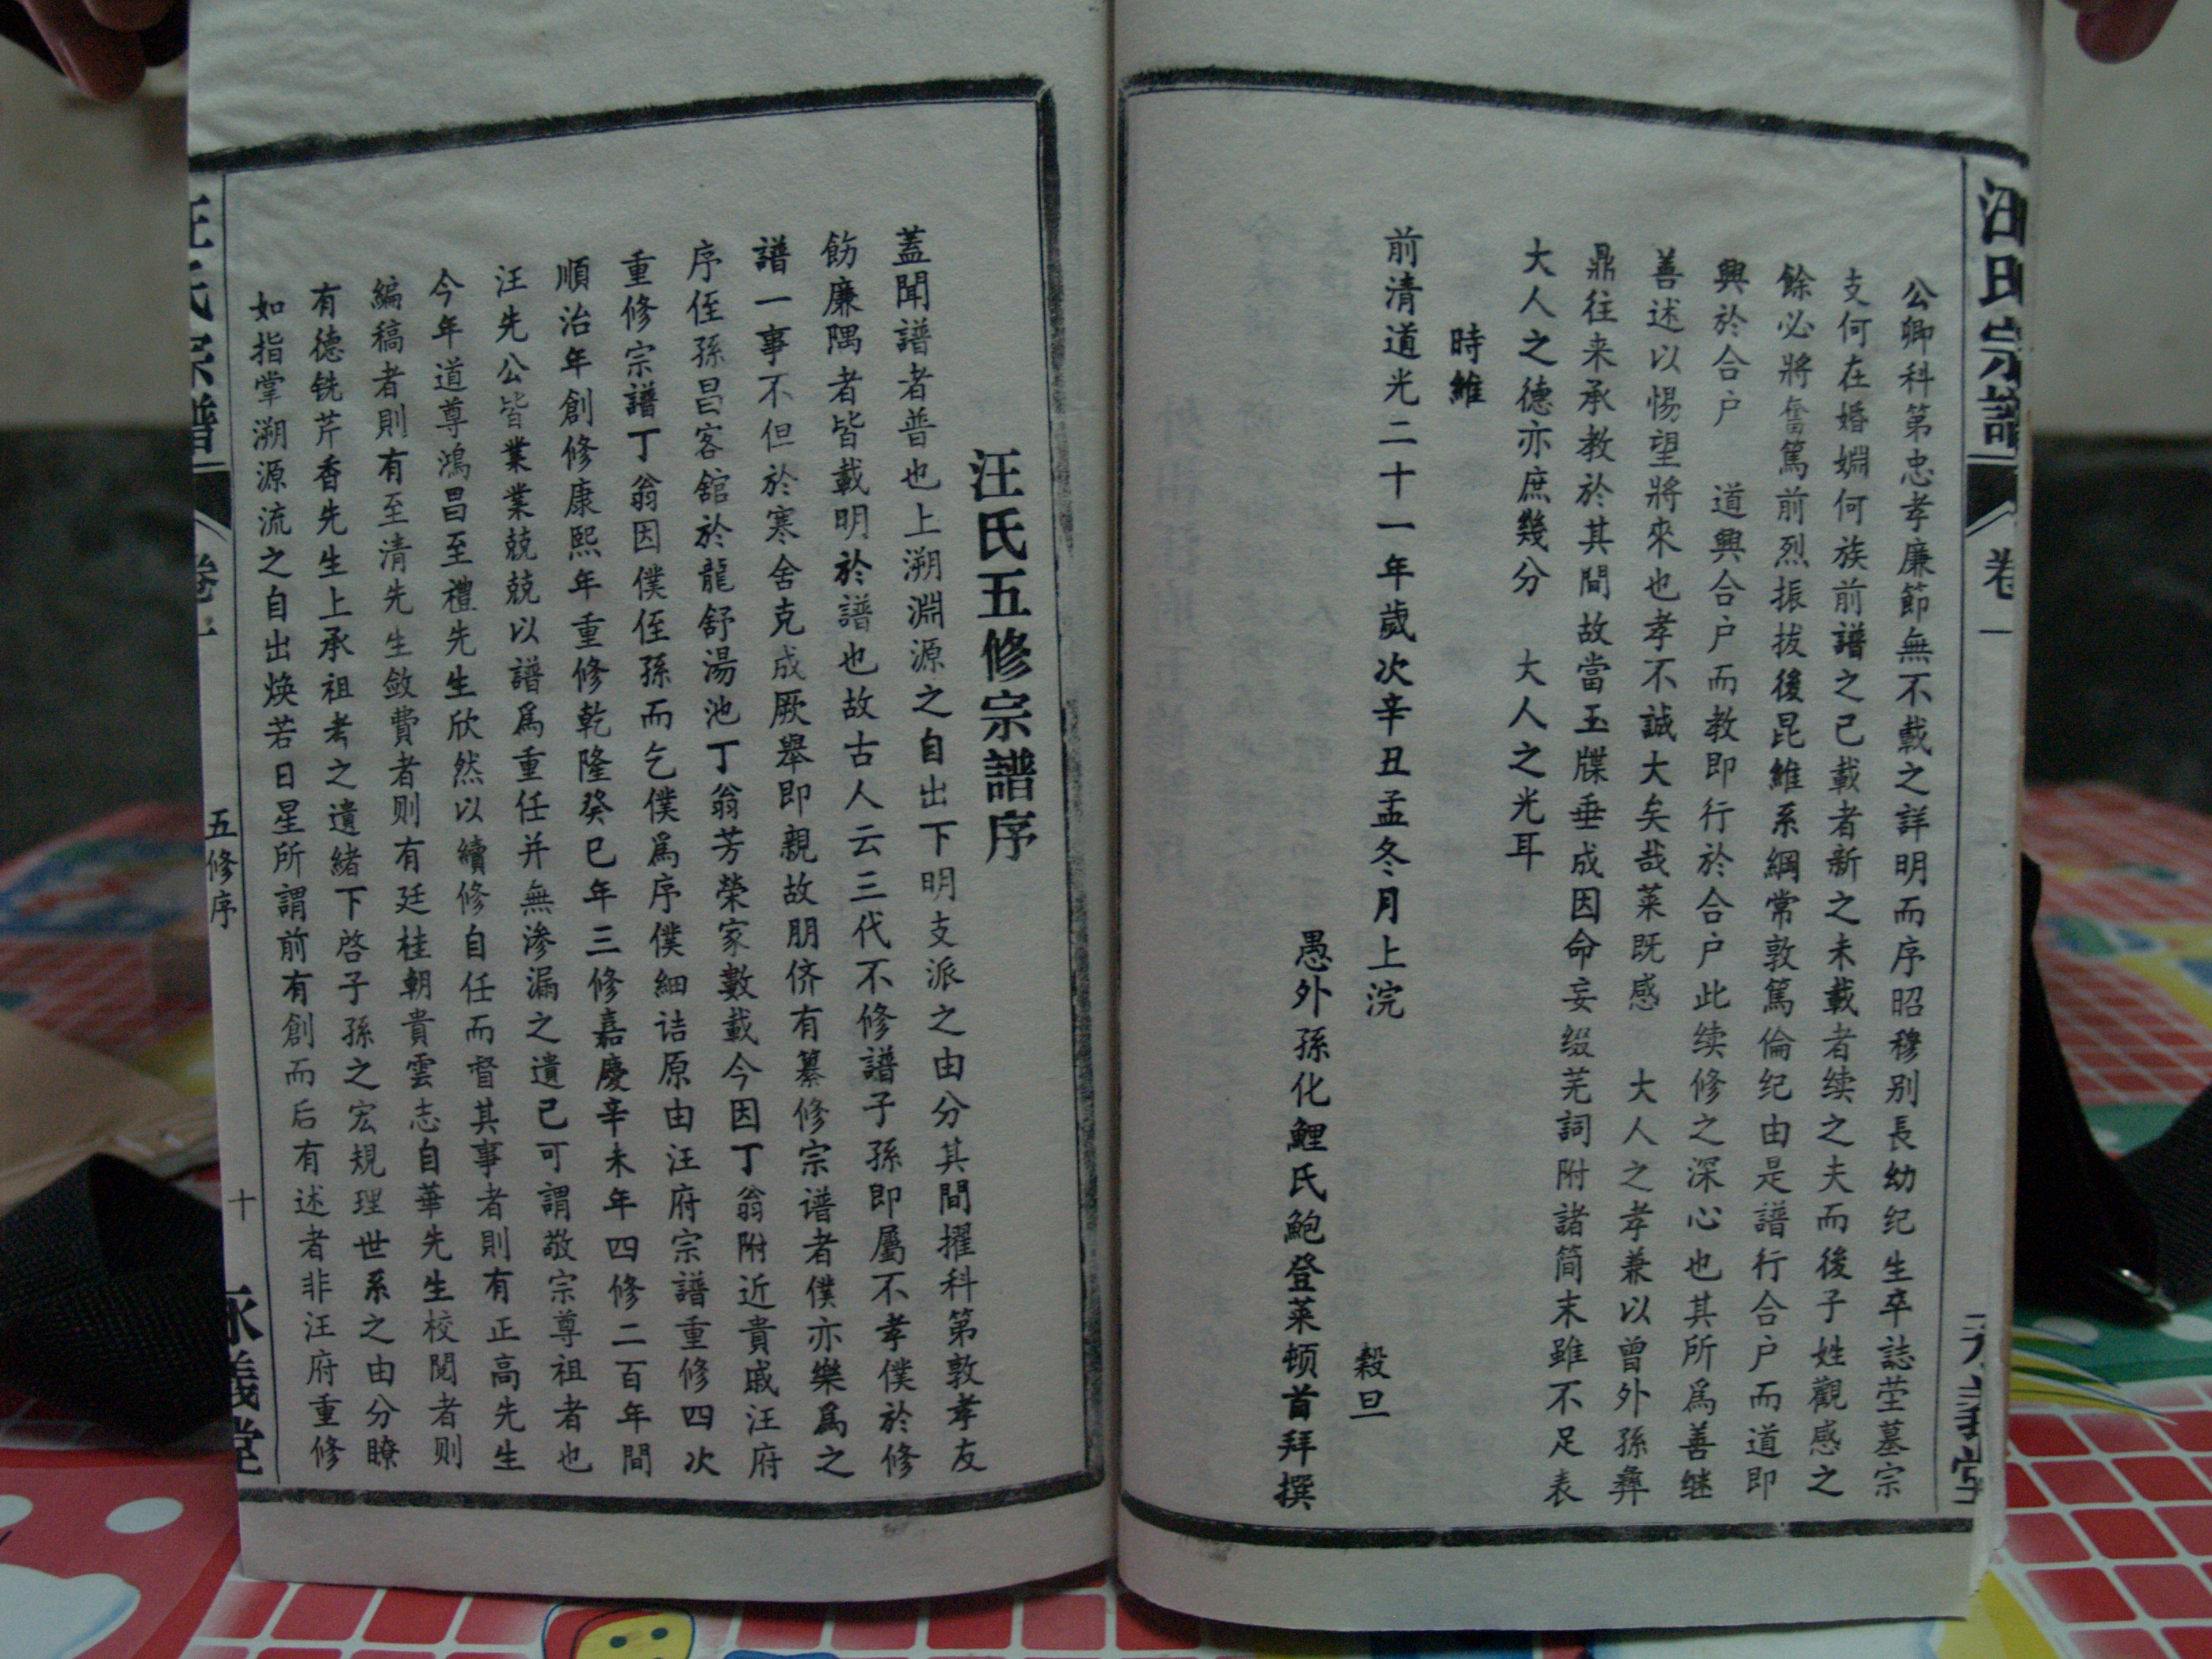 汪氏宗譜
卷一
公卿科第忠孝廉節無不載之詳明而序昭穆别長幼纪生卒誌茔墓宗
支何在婚姻何族前譜之已載者新之未載者续之夫而後子姓觀感之
餘必將奮篤前烈振拔後昆維系綱常敦篤倫纪由是譜行合户而道即
興於合户 道興合户而教即行於合户此续修之深心也其所爲善继
善述以惕望將來也孝不誠大矣哉莱既感 大人之孝兼以曾外孫彝
鼎往来承教於其間故當玉牒垂成因命妄缀芜詞附諸简末雖不足表
大人之德亦庶幾分 大人之光耳
時維
前清道光二十一年歲次辛丑孟冬月上浣 穀旦
愚外孫化鯉氏鮑登莱顿首拜撰
汪氏五修宗譜序
蓋聞譜者普也上溯淵源之自出下明支派之由分其間擢科第敦孝友
飭廉隅者皆載明於譜也故古人云三代不修譜子孫即屬不孝僕於修
譜一事不但於寒舍克成厥舉即親故朋侪有纂修宗谱者僕亦樂爲之
序侄孫昌客舘於龍舒湯池丁翁芳榮家數載今因丁翁附近貴戚汪府
重修宗譜丁翁因僕侄孫而乞僕爲序僕細诘原由汪府宗譜重修四次
順治年創修康熙年重修乾隆癸巳年三修嘉慶辛未年四修二百年間
汪先公皆業業兢兢以譜爲重任并無渗漏之遺已可謂敬宗尊祖者也
今年道尊鴻昌至禮先生欣然以續修自任而督其事者則有正高先生
編稿者則有至清先生斂費者则有廷桂朝貴雲志自華先生校閲者则
有德铣芹香先生上承祖考之遺緒下啓子孫之宏規理世系之由分瞭
如指掌溯源流之自出焕若日星所謂前有創而后有述者非汪府重修
汪氏宗譜
卷一
五修序
十
永義堂